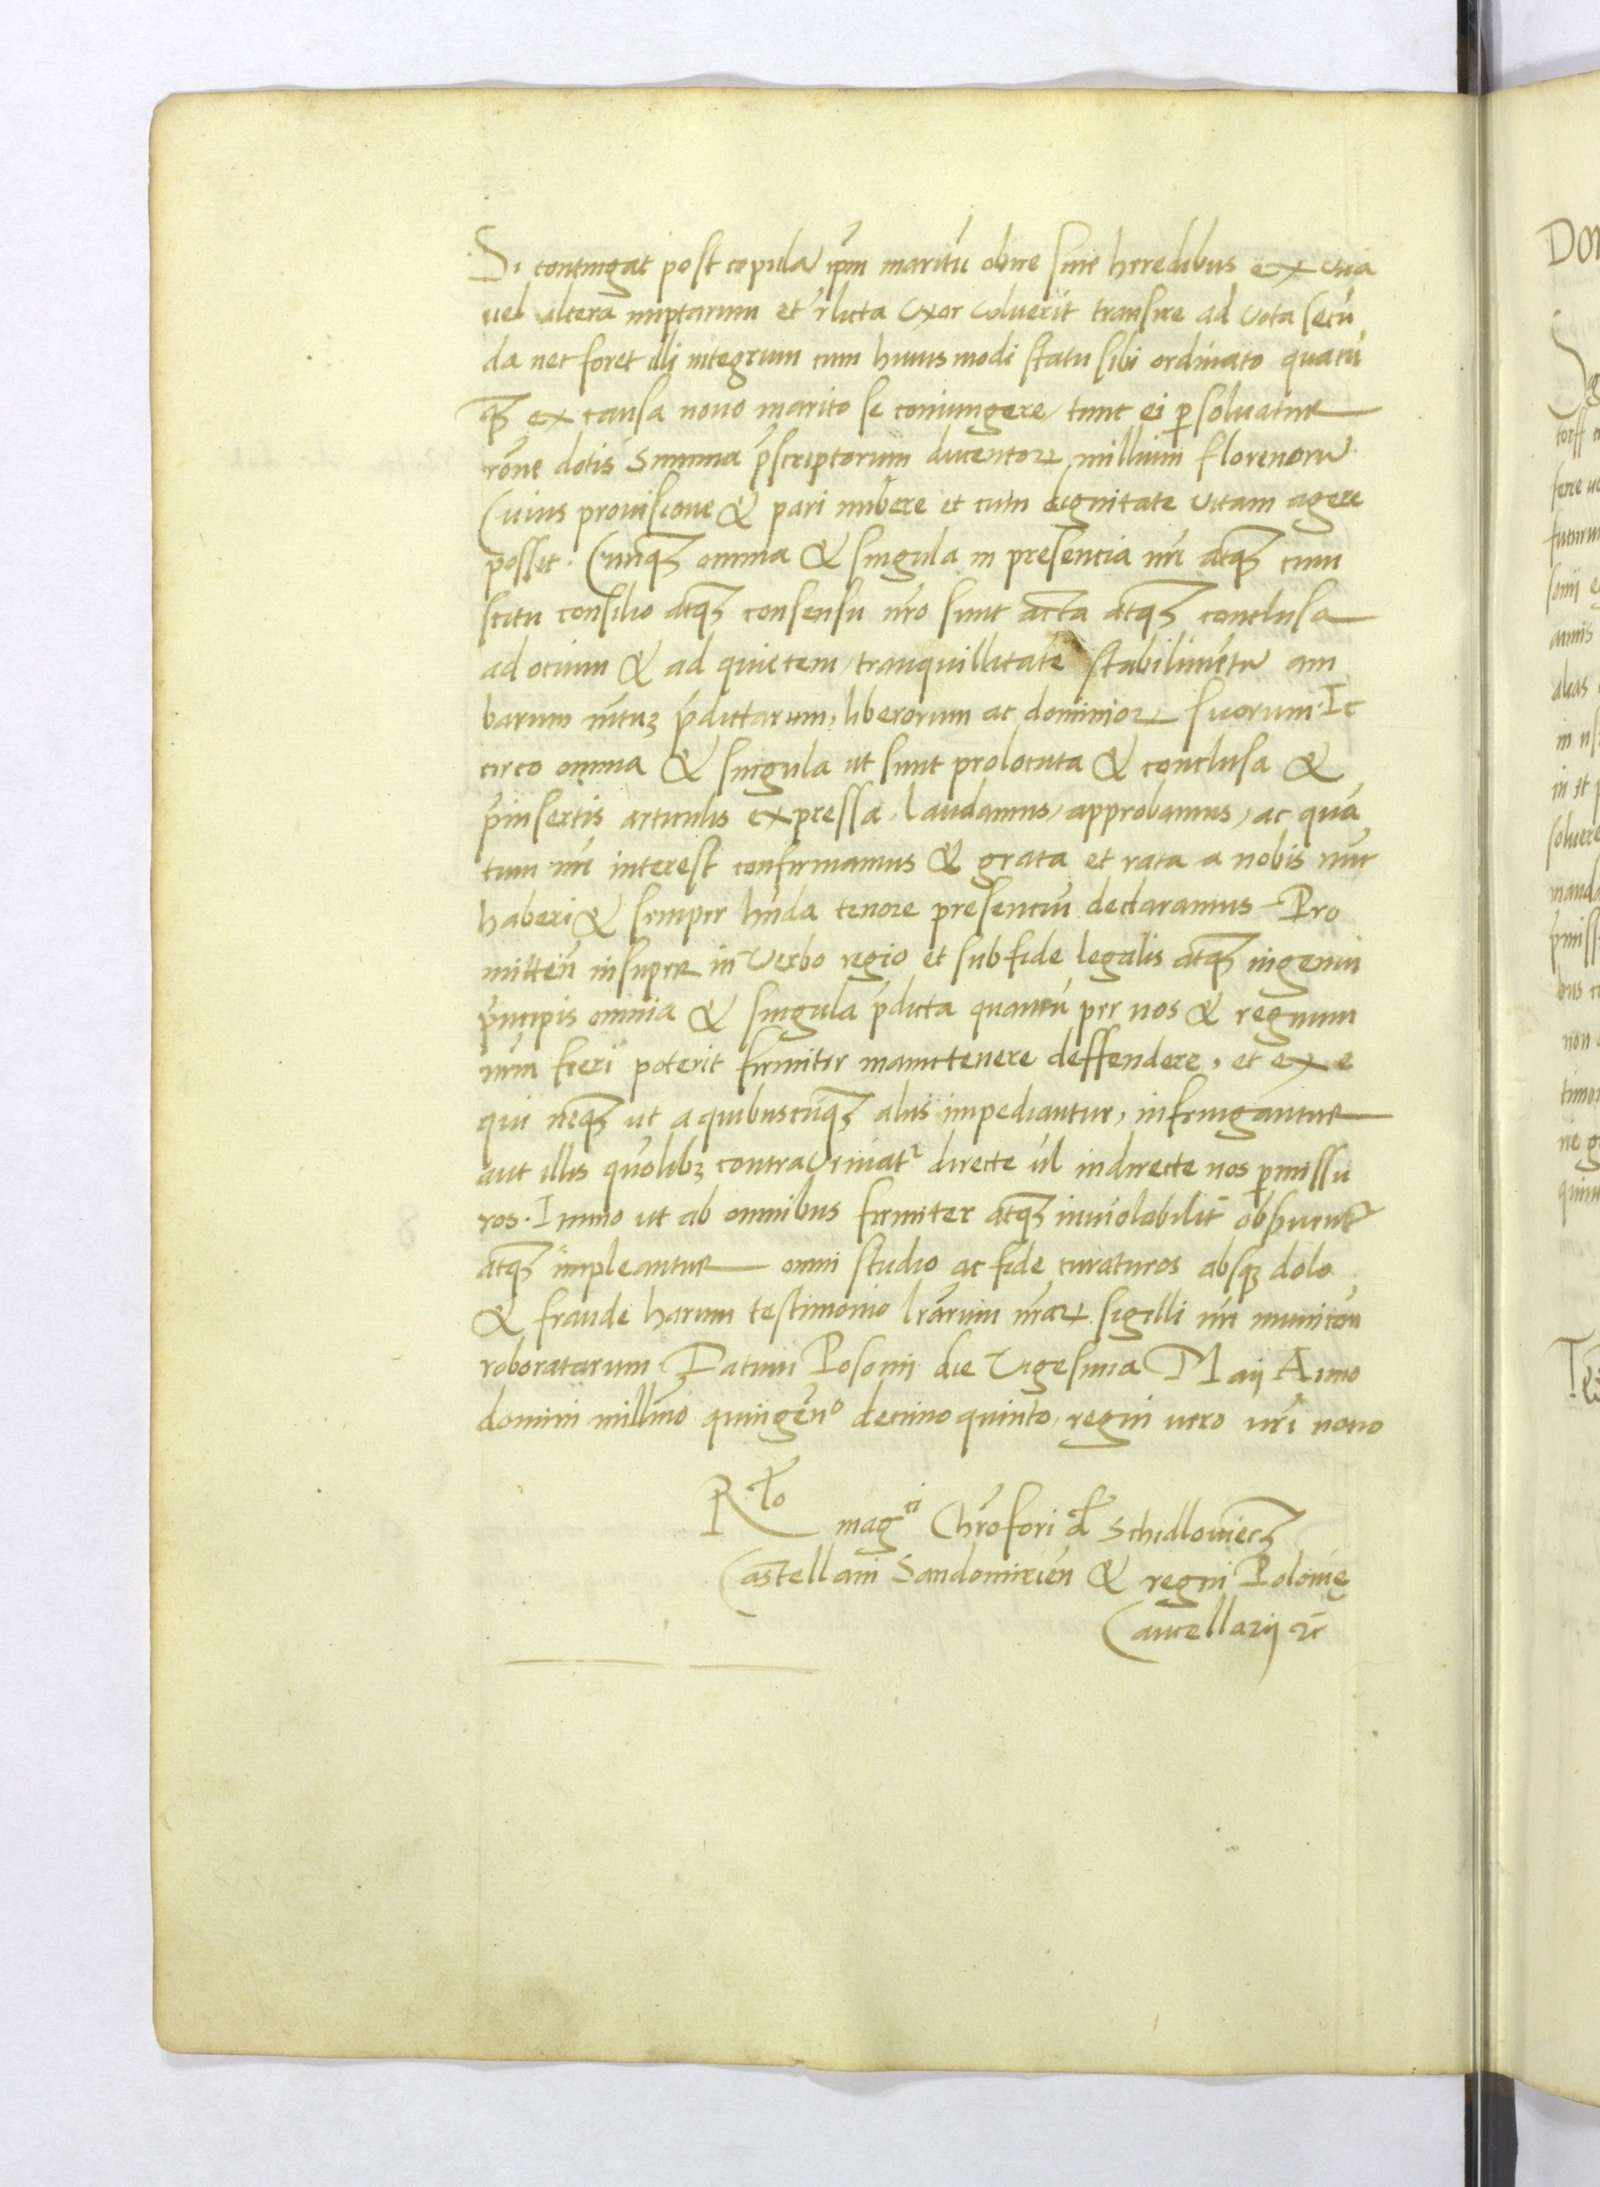 Si contingat post copulā ip̄m maritū obire sine heredibus ex una
vel altera nuptarum et r̄licta uxor voluerit transire ad vota secū
da nec foret illi integrum cum huiusmodi statu sibi ordinato quacū
q₃ ex causa novo marito se coniungere, tunc ei ꝑsolvatur
rōne dotis Summa p̄scriptorum ducentoꝝ millium florenorū
Cuius provisione & pari nubere et cum dignitate vitam agere
possit. Cumq₃ omnia & singula in presencia nr̄i atq₃ cum
scitu consilio atq₃ consensu nr̄o sunt acta atq₃ conclusa
ad ocium & ad quietem, tranquillitatē stabilimētū am
barum p̄dictarum, liberorum ac dominioꝝ suorum. Ic
circo omnia & singula ut sunt prolocuta & conclusa &
p̄insertis articulis expressa, laudamus, approbamus, ac quā
tum nr̄i interest confirmamus & grata et rata a nobis nūc
haberi & semper hn̄da tenore presenciū declaramus. Pro
mitteñ insuper in verbo regio et sub fide legalis atq₃ ingenui
p̄ncipis omnia & singula p̄dicta quantū per nos & regnum
nr̄m fieri poterit firmiter manutenere deffendere, et exe
qui neq₃ ut a quibuscūq₃ aliis impediantur, infringantur
aut illis quolib₃ contraveniatr directe v̄l indirecte nos ꝑmissu
ros. Immo ut ab omnibus firmiter atq₃ inviolabilit̄ observentr
atq₃ impleantur omni studio ac fide curaturos absq₃ dolo
& fraude harum testimonio lr̄arum nr̄aꝝ sigilli nr̄i municōn
roboratarum. Datum Posonii die Vigesima Maij Anno
domini millīmo quingēno decimo quinto, regni vero nr̄i nono
Rᵗⁱᵒ magᶜⁱ Chr̄ofori d̄ Schidloviecz
Castellani Sandomirieñ & regni Polonię
Cancellarij ꝛc̄
DO